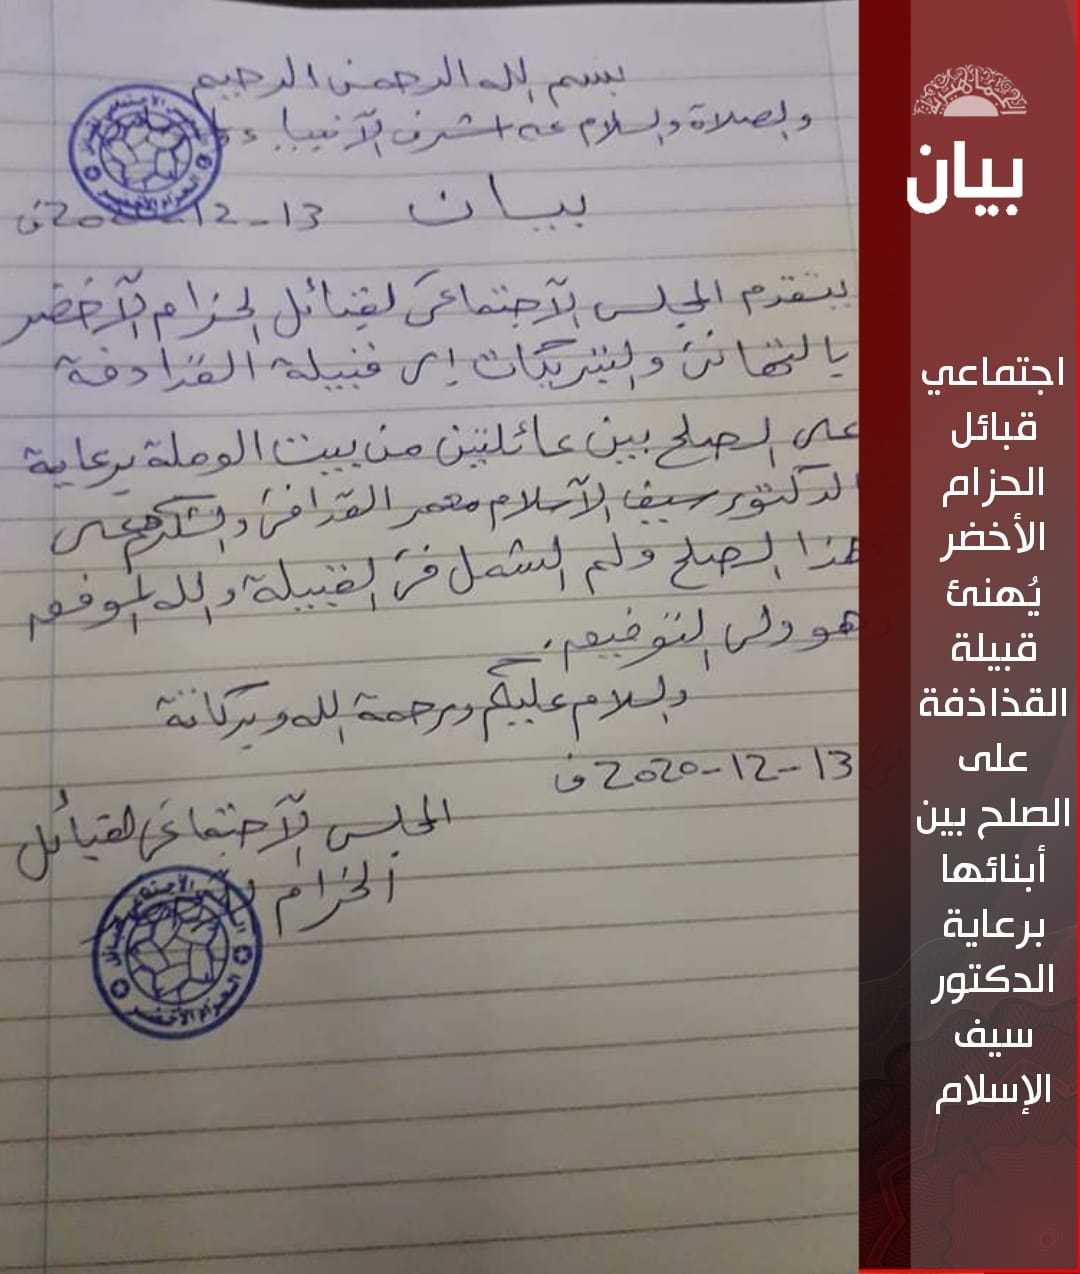 بسم الله الرحمن الرحيم
والصلاة والسلام على اشرف الآنبياء
بيــان
13-12-2020ف
يتقدم المجلس الآجتماعي لقبائل الحزام الآخضر
بالتهاني والتبريكات إلى قبيلة القذاذفة
على الصلح بين عائلتين من بيت الوملة برعاية
الدكتور سيف الآسلام معمر القذافي والشكر على
هذا الصلح ولم الشمل في القبيلة والله الموفق
وهو ولي التوفيق.
والسلام عليكم ورحمة الله وبركاتة
13-12-2020 ف
المجلس الآجتماعي لقبائل
الحزام
الحزام الأخضر
الجماهيرية
بيان
اجتماعي
قبائل
الحزام
الأخضر
يُهنئ
قبيلة
القذاذفة
على
الصلح بين
أبنائها
برعاية
الدكتور
سيف
الإسلام